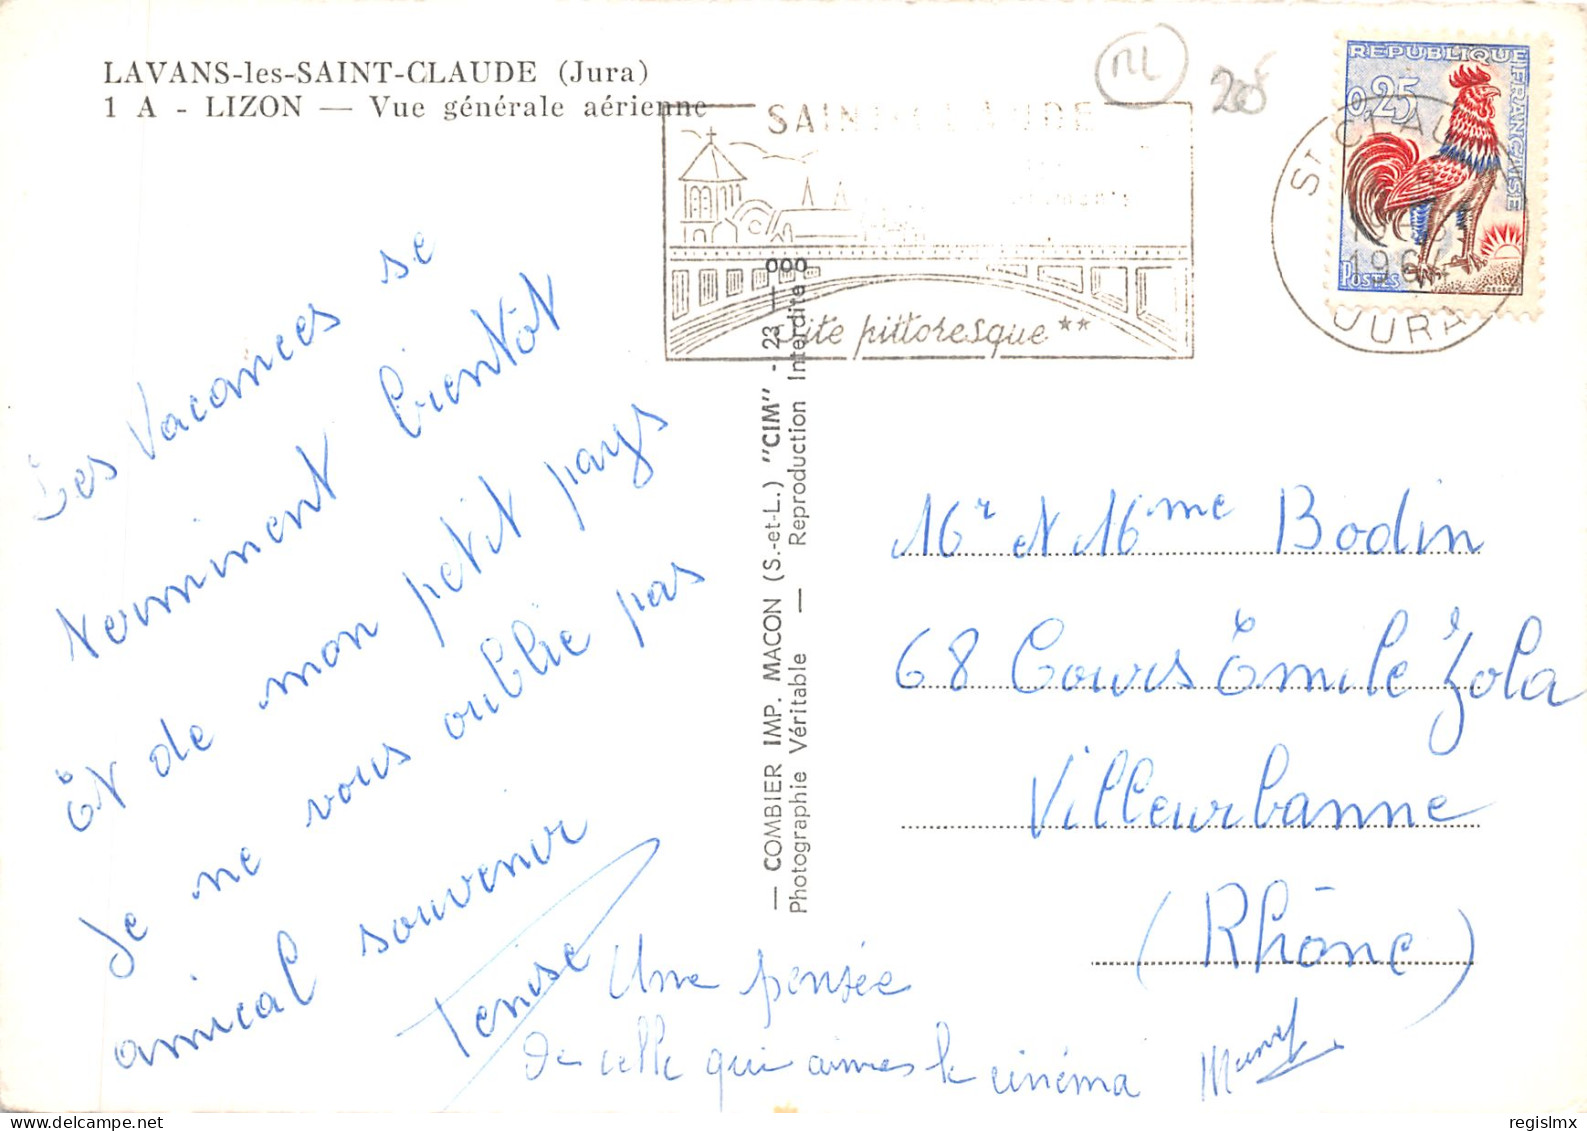 LAVANS-les-SAINT-CLAUDE (Jura)
1 A - LIZON — Vue générale aérienne
RL
208
SAINT-CLAUDE
Site pittoresque **
ST CLAUDE
196
JURA
REPUBLIQUE FRANÇAISE
0,25
POSTES
DECARIS
Les vacances se
terminent bientôt
Et de mon petit pays
Je ne vous oublie pas
amical souvenir
Denise
Une pensée
de celle qui aimes le cinéma
— COMBIER IMP. MACON (S.-et-L.) "CIM" - 23 — 000
Photographie Véritable — Reproduction Interdite
Mr et Mme Bodin
68 Cours Emile Zola
Villeurbanne
(Rhône)
regislmx